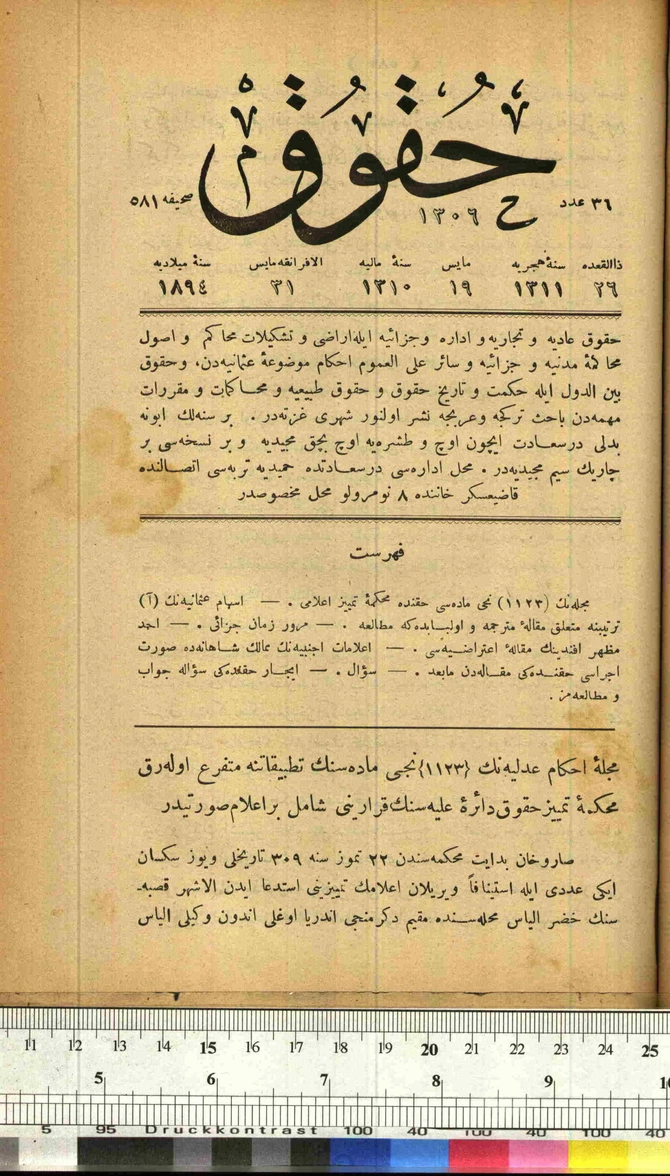 حقوق
٣٦ عدد
ح ١٣٠٦
صحيفه ٥٨١
ذاالقعده سنۀ هجريه مايس سنۀ ماليه الافرانقه مايس سنۀ ميلاديه
٢٦ ١٣١١ ١٩ ١٣١٠ ٣١ ١٨٩٤
حقوق عاديه و تجاريه و اداره و جزائيه ايله اراضى و تشكيلات محاكم و اصول
محاكمۀ مدنيه و جزائيه و سائر على العموم احكام موضوعۀ عثمانيه‌دن، وحقوق
بين الدول ايله حكمت و تاريخ حقوق و حقوق طبيعيه و محاكمات و مقررات
مهمه‌دن باحث تركجه وعربجه نشر اولنور شهرى غزته‌در . بر سنه‌لك ابونه
بدلى درسعادت ايچون اوچ و طشره‌يه اوچ بچق مجيديه و بر نسخه‌سى بر
چاريك سيم مجيديه‌در . محل اداره‌سى درسعادتده حميديه تربه‌سى اتصالنده
قاضيعسكر خاننده ٨ نومرولو محل مخصوصدر
فهرست
مجله‌نك (١١٢٣) نجى ماده‌سى حقنده محكمۀ تمييز اعلامى . — اسهام عثمانيه‌نك (آ)
ترتيبنه متعلق مقالۀ مترجمه و اولبابده‌كه مطالعه . — مرور زمان جزائى . — احمد
مظهر افندينك مقالۀ اعتراضيه‌سى . — اعلامات اجنبيه‌نك ممالك شاهانه‌ده صورت
اجراسى حقنده‌كى مقاله‌دن مابعد . — سؤال . — ايجار حقنده‌كى سؤاله جواب
و مطالعه‌مز .
مجلۀ احكام عدليه‌نك {١١٢٣}نجى ماده‌سنك تطبيقاتنه متفرع اوله‌رق
محكمۀ تمييز حقوق دائرۀ عليه‌سنك قرارينى شامل براعلام صورتيدر
صاروخان بدايت محكمه‌سندن ٢٢ تموز سنه ٣٠٩ تاريخلى ويوز سكسان
ايكى عددى ايله استينافاً ويريلان اعلامك تمييزينى استدعا ايدن الاشهر قصبه‌ـ
سنك خضر الياس محله‌سنده مقيم دكرمنجى اندريا اوغلى اندون وكيلى الياس
11 12 13 14 15 16 17 18 19 20 21 22 23 24 25
5 6 7 8 9
5 95 Druckkontrast 100 40 100 40 100 40